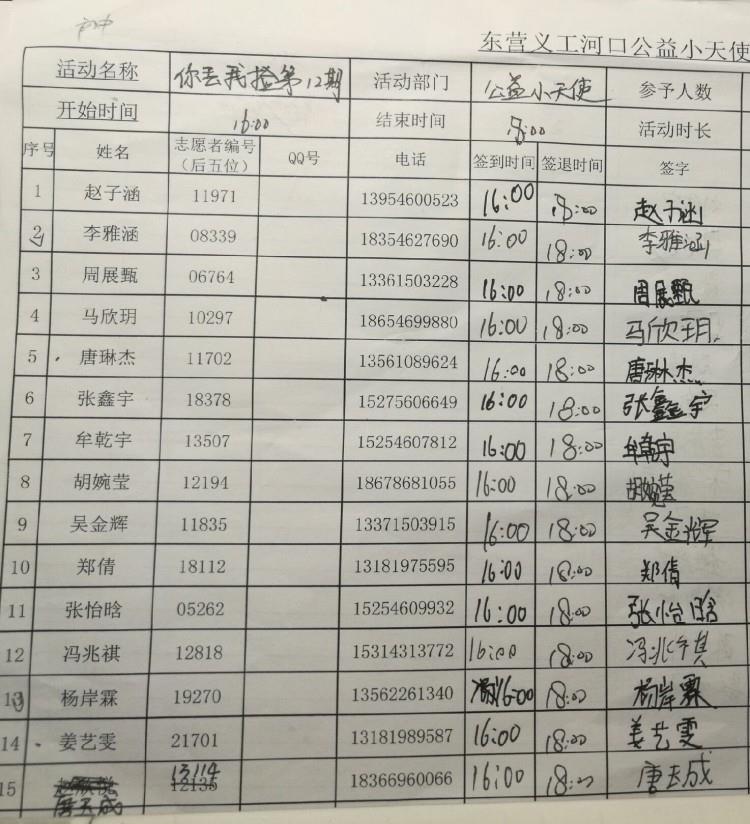 东营义工河口公益小天使
活动名称 你丢我捡第12期 活动部门 公益小天使 参予人数
开始时间 16:00 结束时间 18:00 活动时长
序号 姓名 志愿者编号（后五位） QQ号 电话 签到时间 签退时间 签字
1 赵子涵 11971 13954600523 16:00 18:00 赵子涵
2 李雅涵 08339 18354627690 16:00 18:00 李雅涵
3 周展甄 06764 13361503228 16:00 18:00 周展甄
4 马欣玥 10297 18654699880 16:00 18:00 马欣玥
5 唐琳杰 11702 13561089624 16:00 18:00 唐琳杰
6 张鑫宇 18378 15275606649 16:00 18:00 张鑫宇
7 牟乾宇 13507 15254607812 16:00 18:00 牟乾宇
8 胡婉莹 12194 18678681055 16:00 18:00 胡婉莹
9 吴金辉 11835 13371503915 16:00 18:00 吴金辉
10 郑倩 18112 13181975595 16:00 18:00 郑倩
11 张怡晗 05262 15254609932 16:00 18:00 张怡晗
12 冯兆祺 12818 15314313772 16:00 18:00 冯兆祺
13 杨岸霖 19270 13562261340 16:00 18:00 杨岸霖
14 姜艺雯 21701 13181989587 16:00 18:00 姜艺雯
15 唐天成 13114 12135 18366960066 16:00 18:00 唐天成